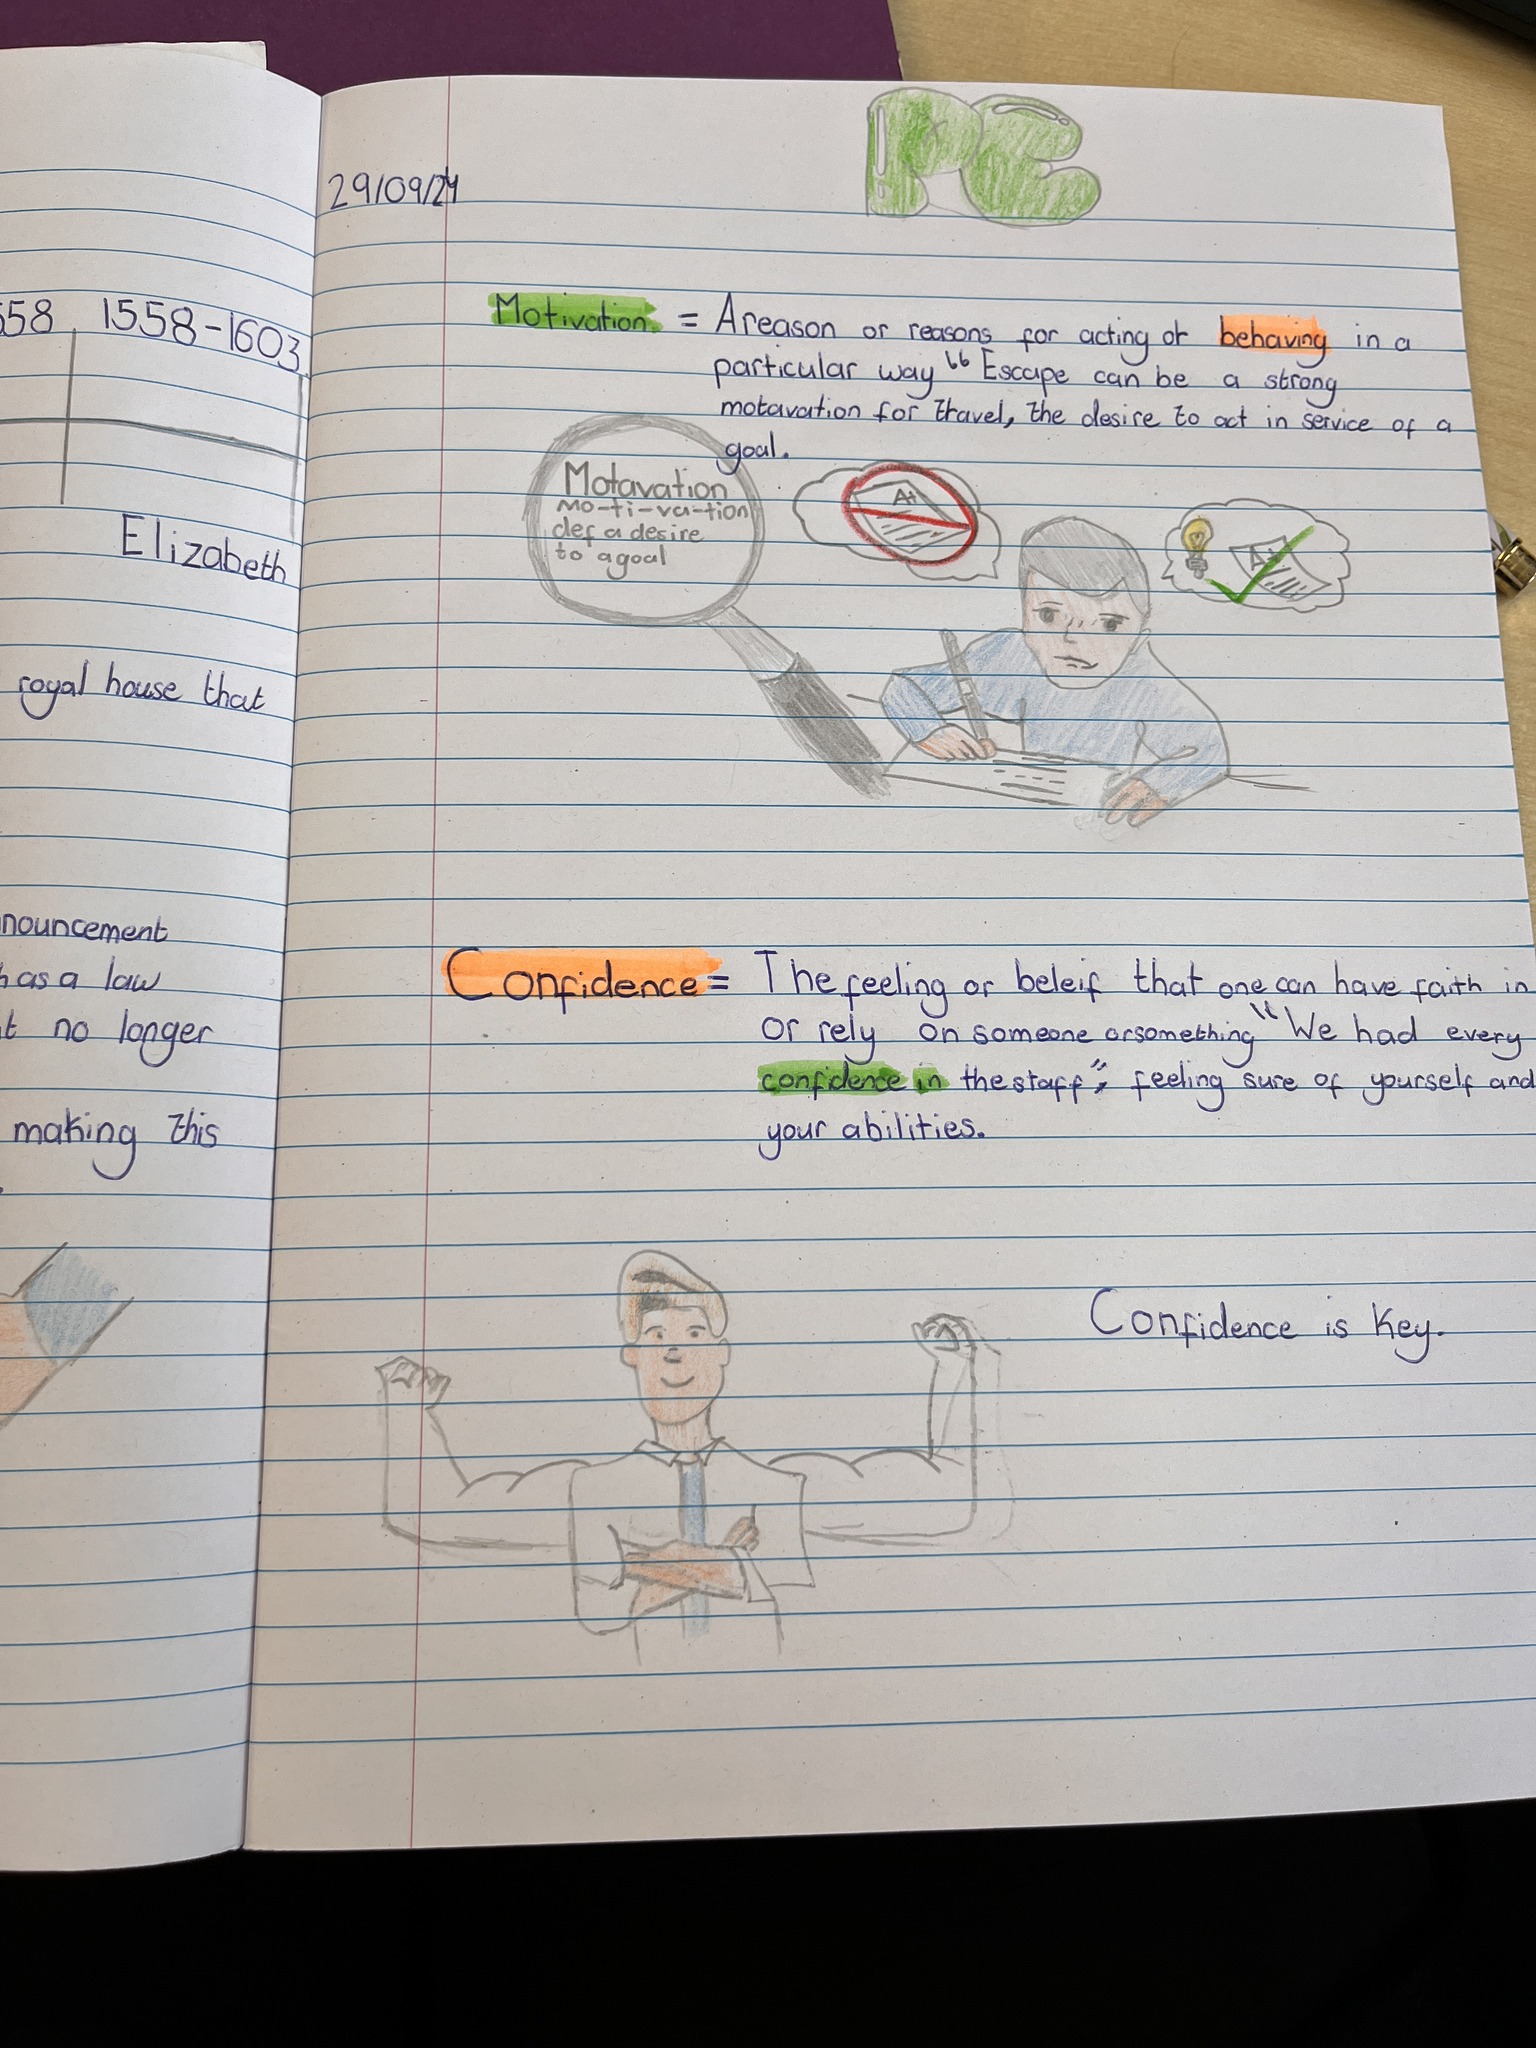 558 1558-1603
Elizabeth
royal house that
nouncement
as a law
no longer
making this
PE
29/09/24
Motivation = A reason or reasons for acting or behaving in a
particular way “ Escape can be a strong
motavation for travel, the desire to act in service of a
goal.
Motavation
mo-ti-va-tion
def a desire
to a goal
A+
A+
Confidence = The feeling or beleif that one can have faith in
or rely on someone or something “We had every
confidence in the staff”; feeling sure of yourself and
your abilities.
Confidence is Key.